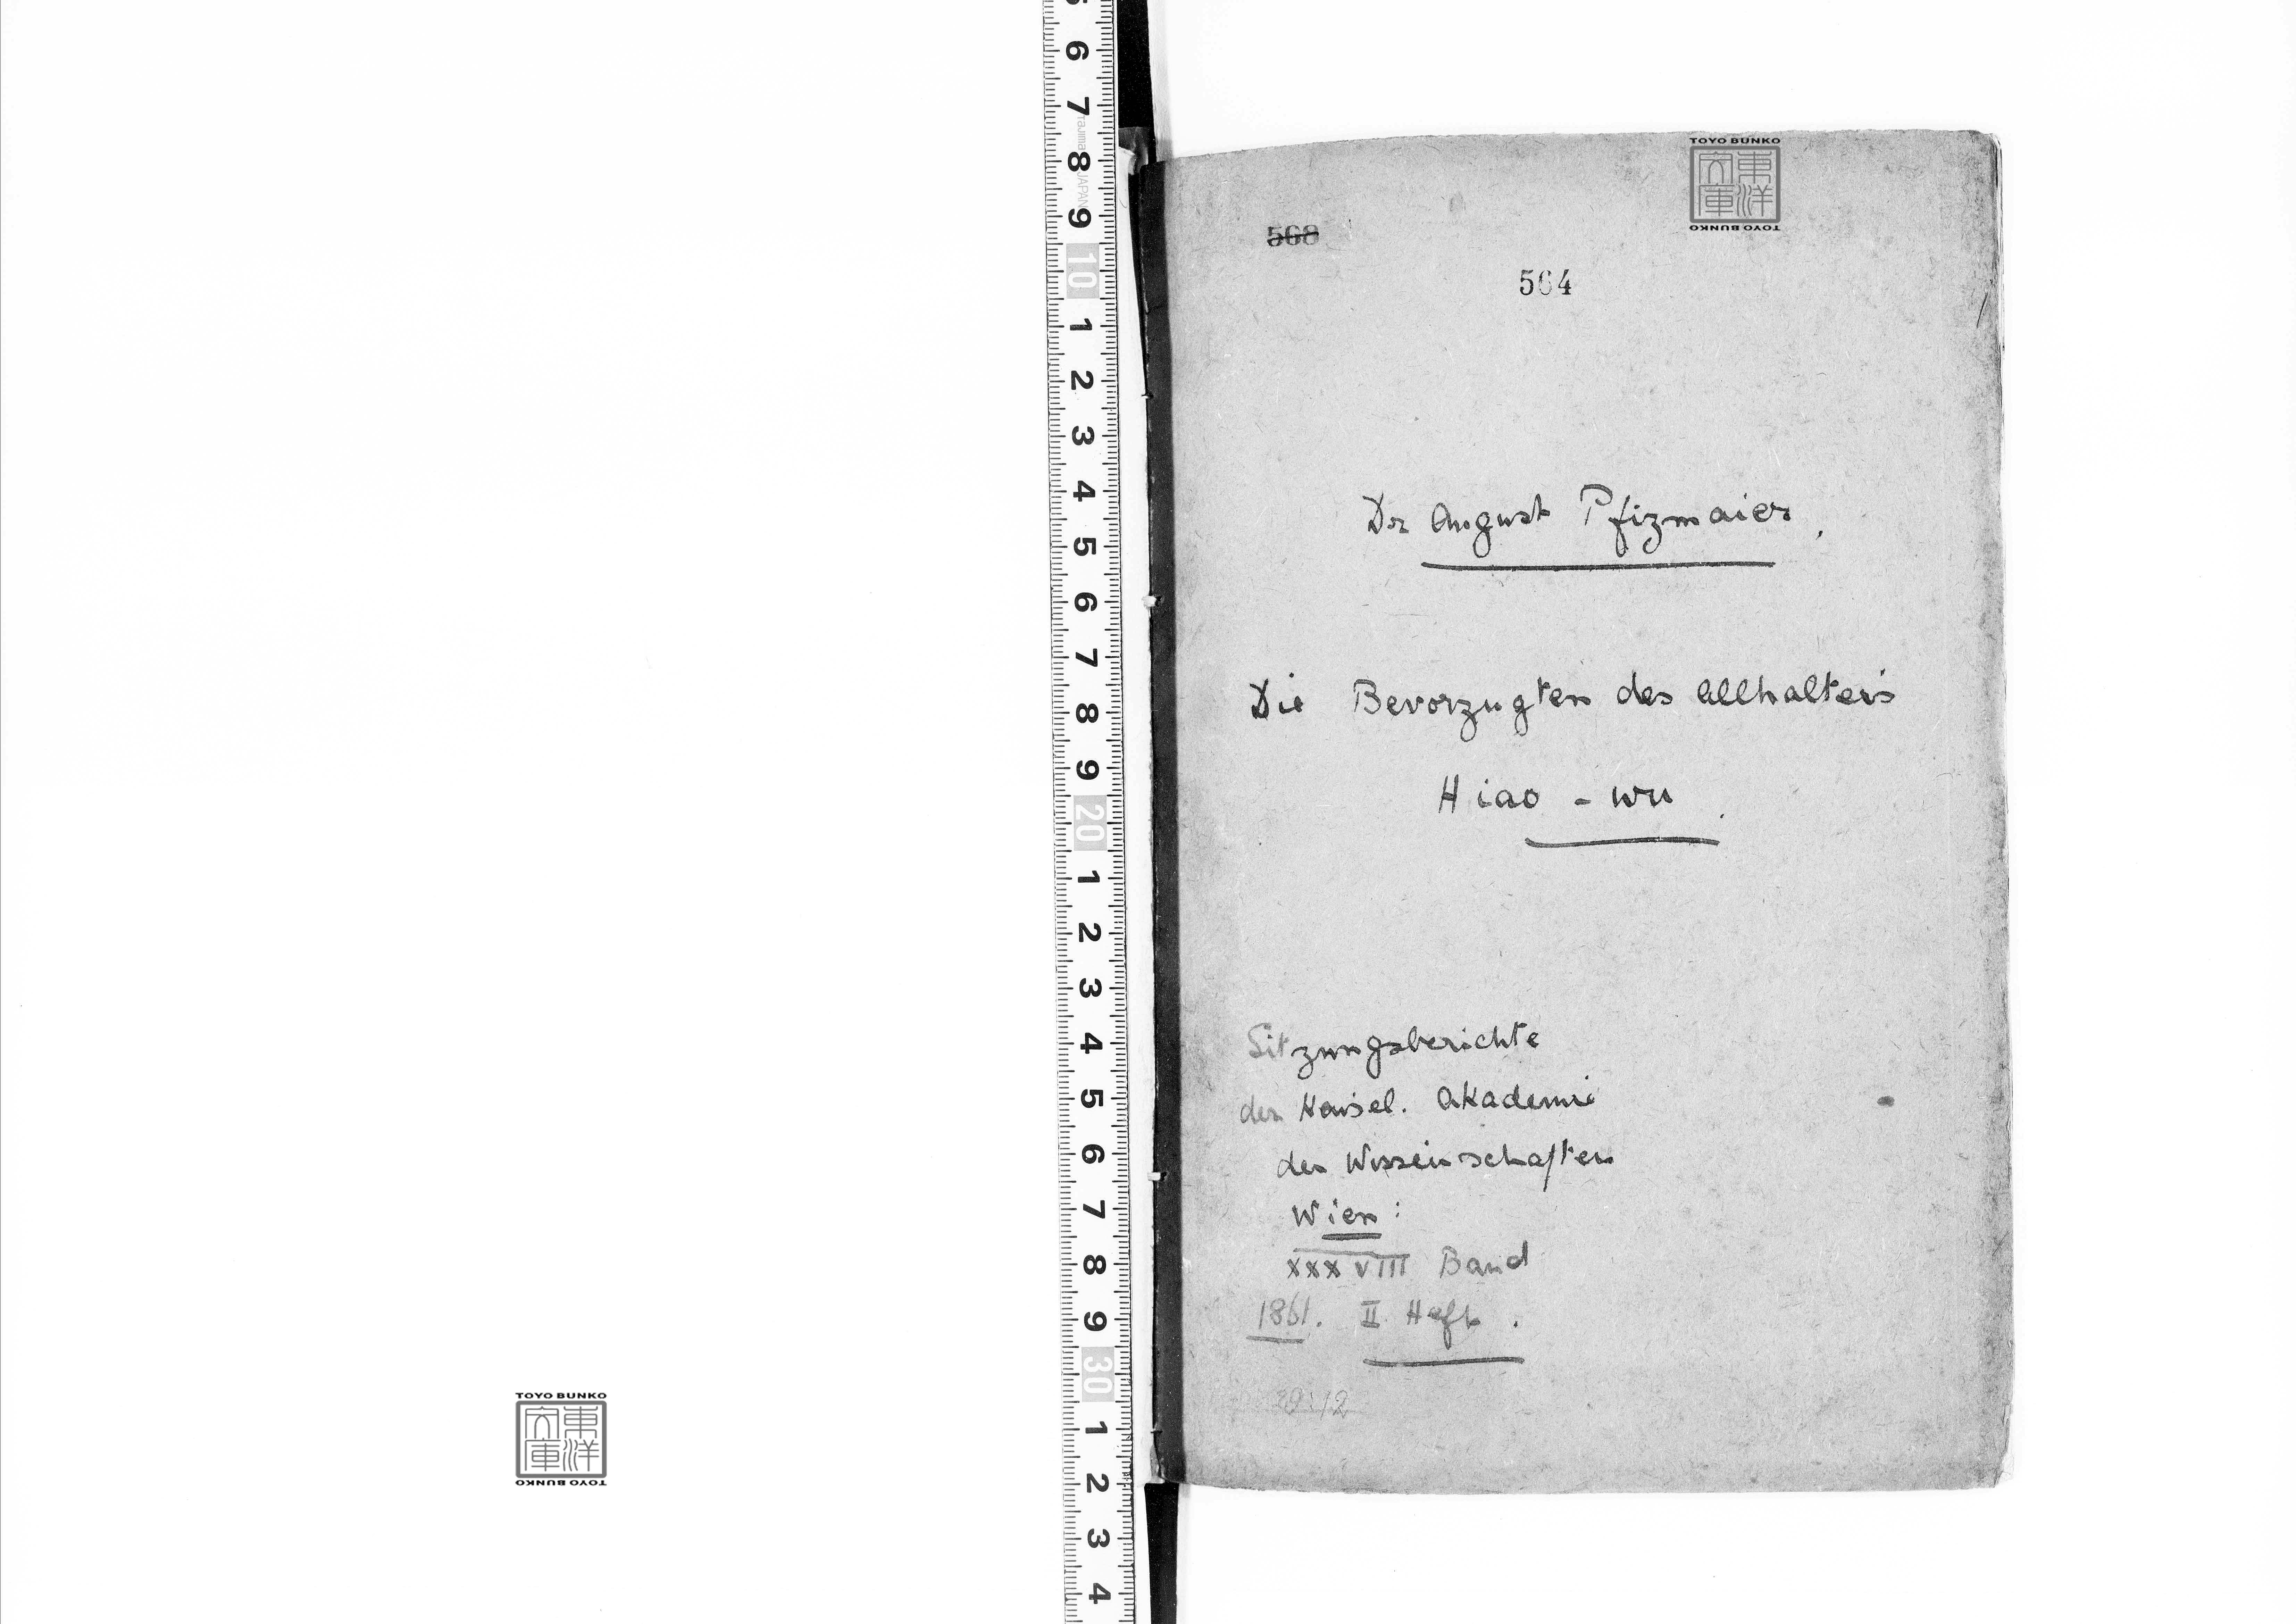 568
564
Dr August Pfizmaier.
Die Bevorzugten des Allhalters
Hiao - wu.
Sitzungsberichte
der Kaisel. Akademie
der Wissenschaften
Wien :
XXXVIII Band
1861. II Heft.
TOYO BUNKO
東洋文庫
TOYO BUNKO
TOYO BUNKO
東洋文庫
TOYO BUNKO
6
7
8
9
10
1
2
3
4
5
6
7
8
9
20
1
2
3
4
5
6
7
8
9
30
1
2
3
4
Tajima
JAPAN